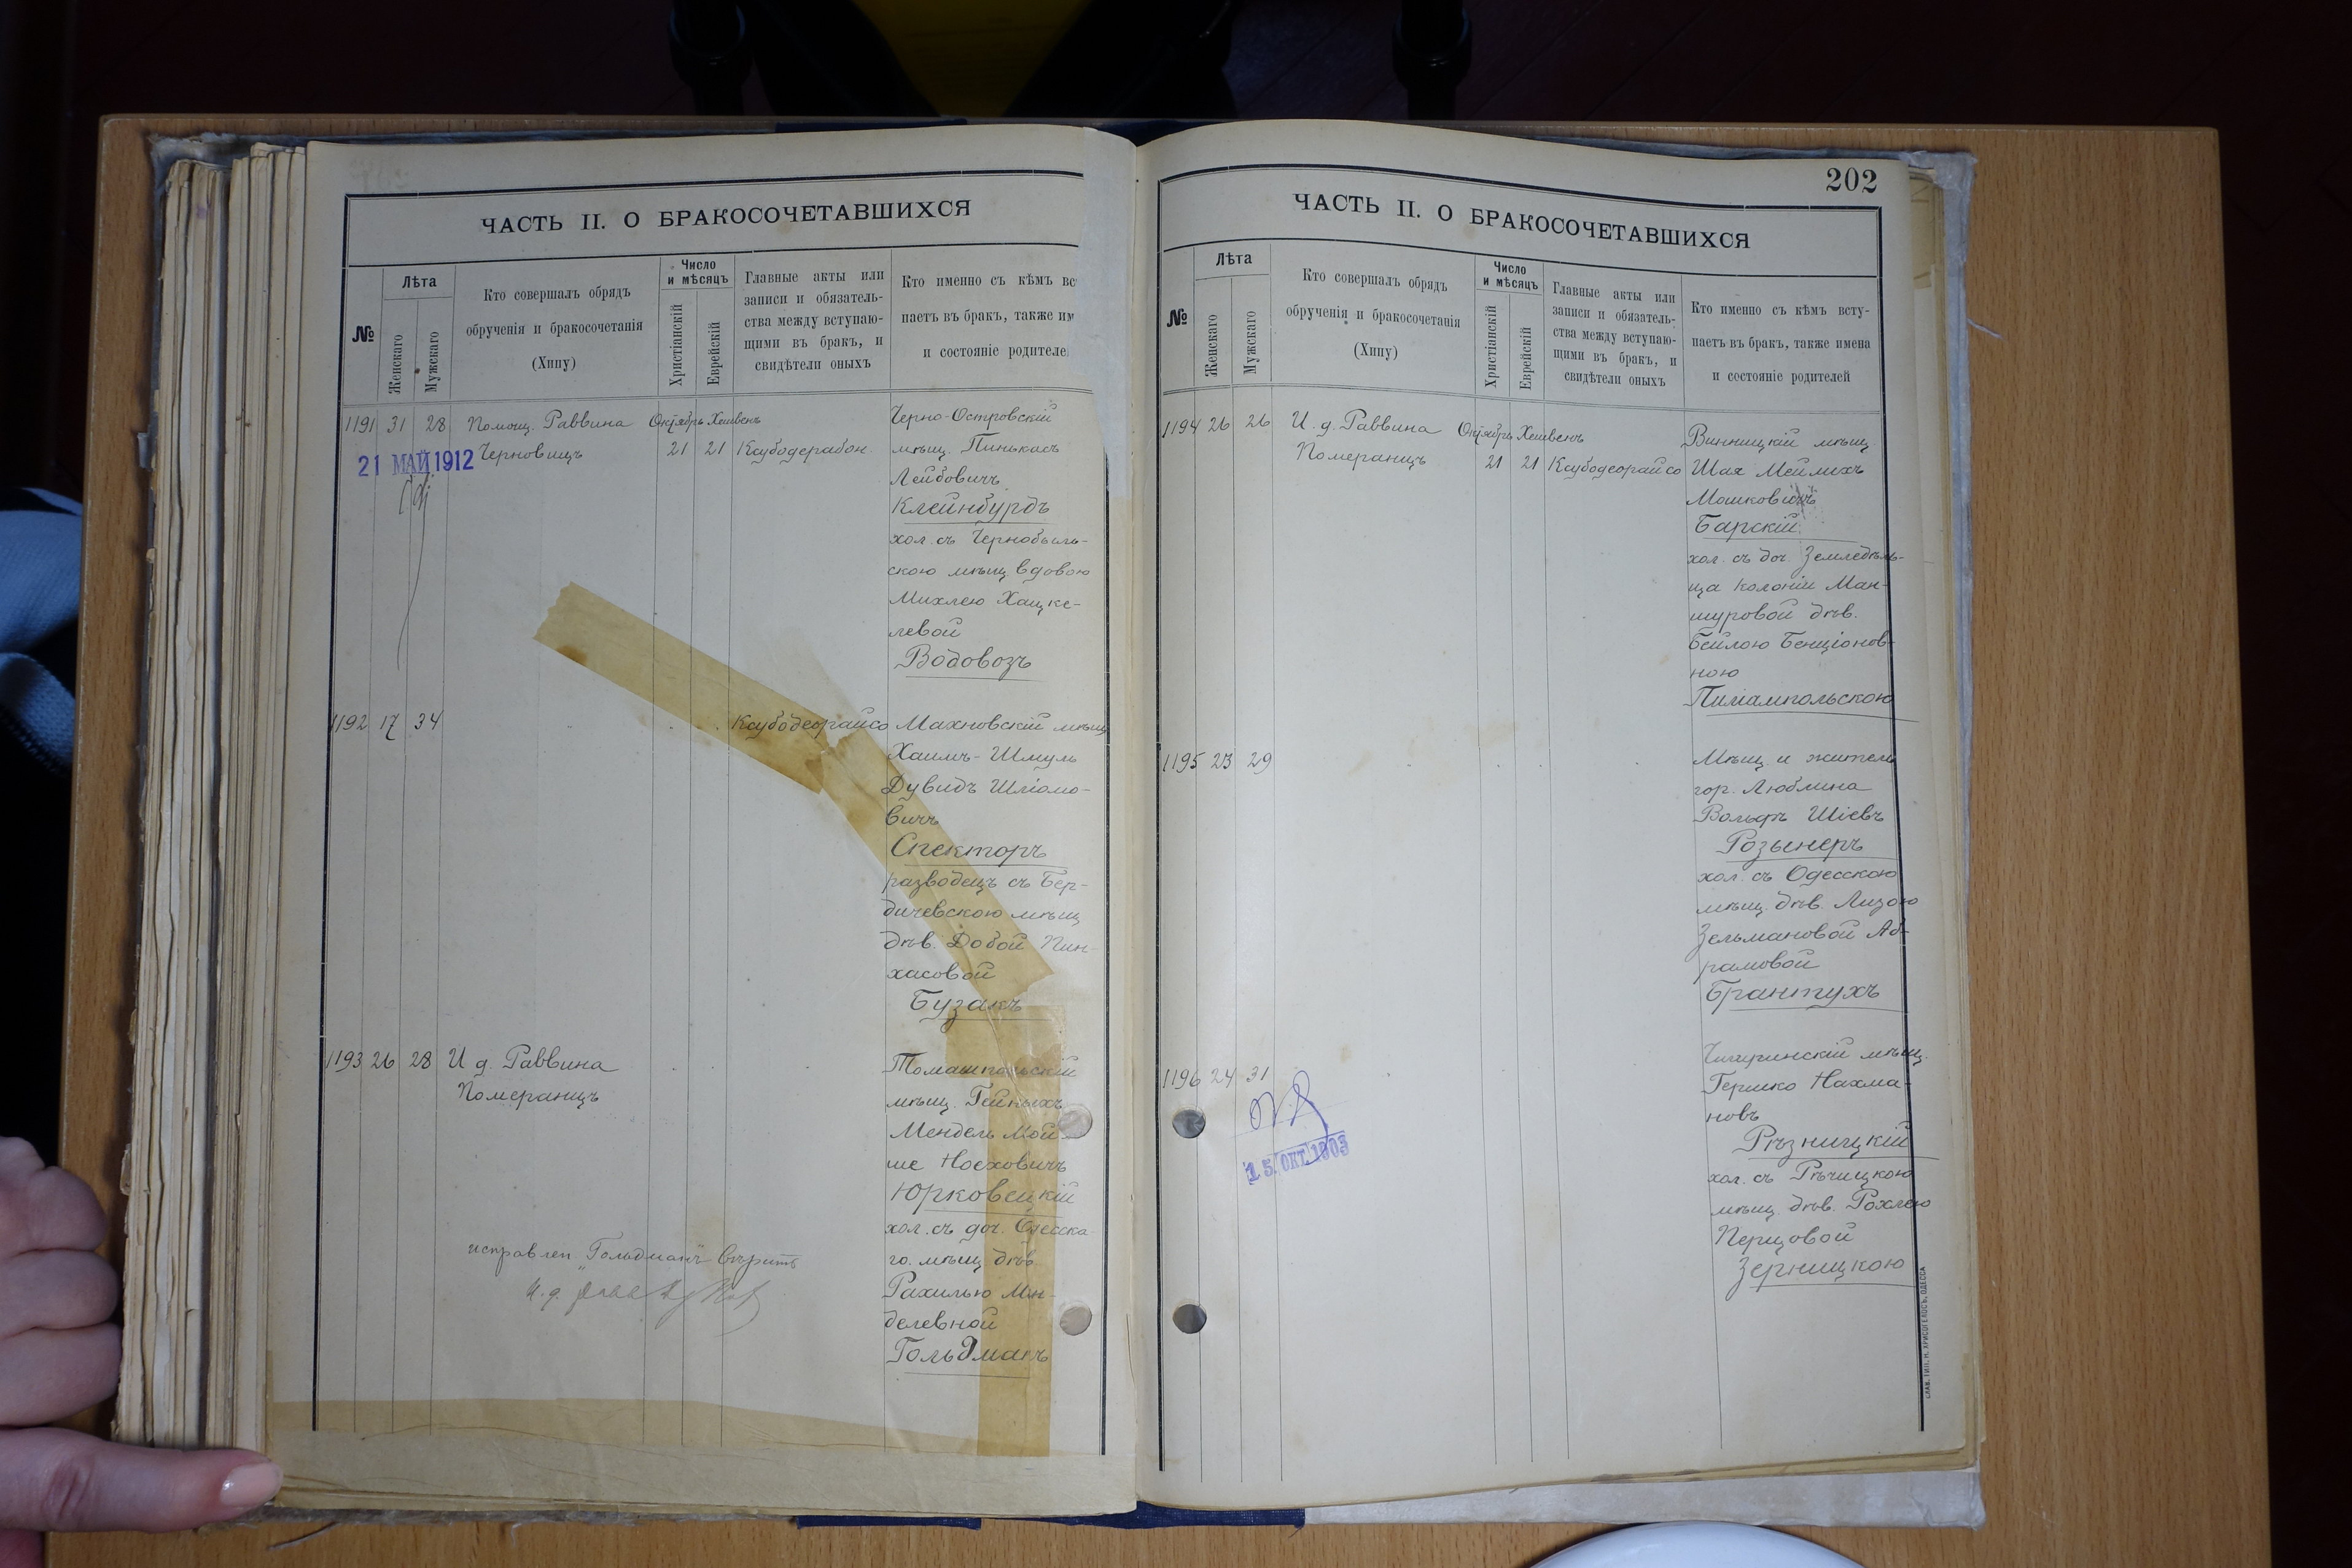 ЧАСТЬ II. О БРАКОСОЧЕТАВШИХСЯ
№
Лѣта
Женскаго
Мужскаго
Кто совершалъ обрядъ
обрученія и бракосочетанія
(Хипу)
Число
и мѣсяцъ
Христіанскій
Еврейскій
Главные акты или
записи и обязатель-
ства между вступаю-
щими въ бракъ, и
свидѣтели оныхъ
Кто именно съ кѣмъ вс
паетъ въ бракъ, также им
и состояніе родителе
1191 31 28 Помощ. Раввина Октябрь Хешвенъ
Черновицъ 21 21 Ксубодерабон.
21 МАЙ 1912
Черно-Островскій
мѣщ. Пинькасъ
Лейбовичъ
Клейнбурдъ
хол. съ Чернобыль-
скою мѣщ. вдовою
Михлею Хацке-
левой
Водовозъ
1192 17 34 Ксубодеорайсо
Махновскій мѣщ
Хаимъ-Шмуль
Дувидъ Шліомо-
вичъ
Спекторъ
разводецъ съ Бер-
дичевскою мѣщ
дѣв. Добой Пин-
хасовой
Бузакъ
1193 26 28 И д. Раввина
Померанцъ
Томашпольскій
мѣщ. Гейныхъ
Мендель Мой-
ше Ноеховичъ
Юрковецкій
хол. съ доч. Одесска-
го. мѣщ. дѣв.
Рахилью Мен-
делевной
Гольдманъ
исправлен „Гольдманъ" вѣрить
И. д.
202
ЧАСТЬ II. О БРАКОСОЧЕТАВШИХСЯ
№
Лѣта
Женскаго
Мужскаго
Кто совершалъ обрядъ
обрученія и бракосочетанія
(Хипу)
Число
и мѣсяцъ
Христіанскій
Еврейскій
Главные акты или
записи и обязатель-
ства между вступаю-
щими въ бракъ, и
свидѣтели оныхъ
Кто именно съ кѣмъ всту-
паетъ въ бракъ, также имена
и состояніе родителей
1194 26 26 И. д. Раввина Октябрь Хешвенъ
Померанцъ 21 21 Ксубодеорайсо
Винницкій мѣщ.
Шая Мейлихъ
Мошковичъ
Барскій
хол. съ доч. Земледѣль-
ца колоніи Ман-
шуровой дѣв.
Бейлою Бенціонов-
ною
Пиліампольскою
1195 23 29
Мѣщ. и житель
гор. Люблина
Вольфъ Шіевъ
Розынеръ
хол. съ Одесскою
мѣщ. дѣв. Лизою
Зельмановой Аб-
рамовой
Брантухъ
1196 24 31
15 ОКТ 1903
Чигиринскій мѣщ.
Гершко Нахма-
новъ
Рѣзницкій
хол. съ Рѣчицкою
мѣщ. дѣв. Рохлею
Перцовой
Зерницкою
СЛАВ. ТИП. Н. ХРИСОГЕЛОСЪ, ОДЕССА